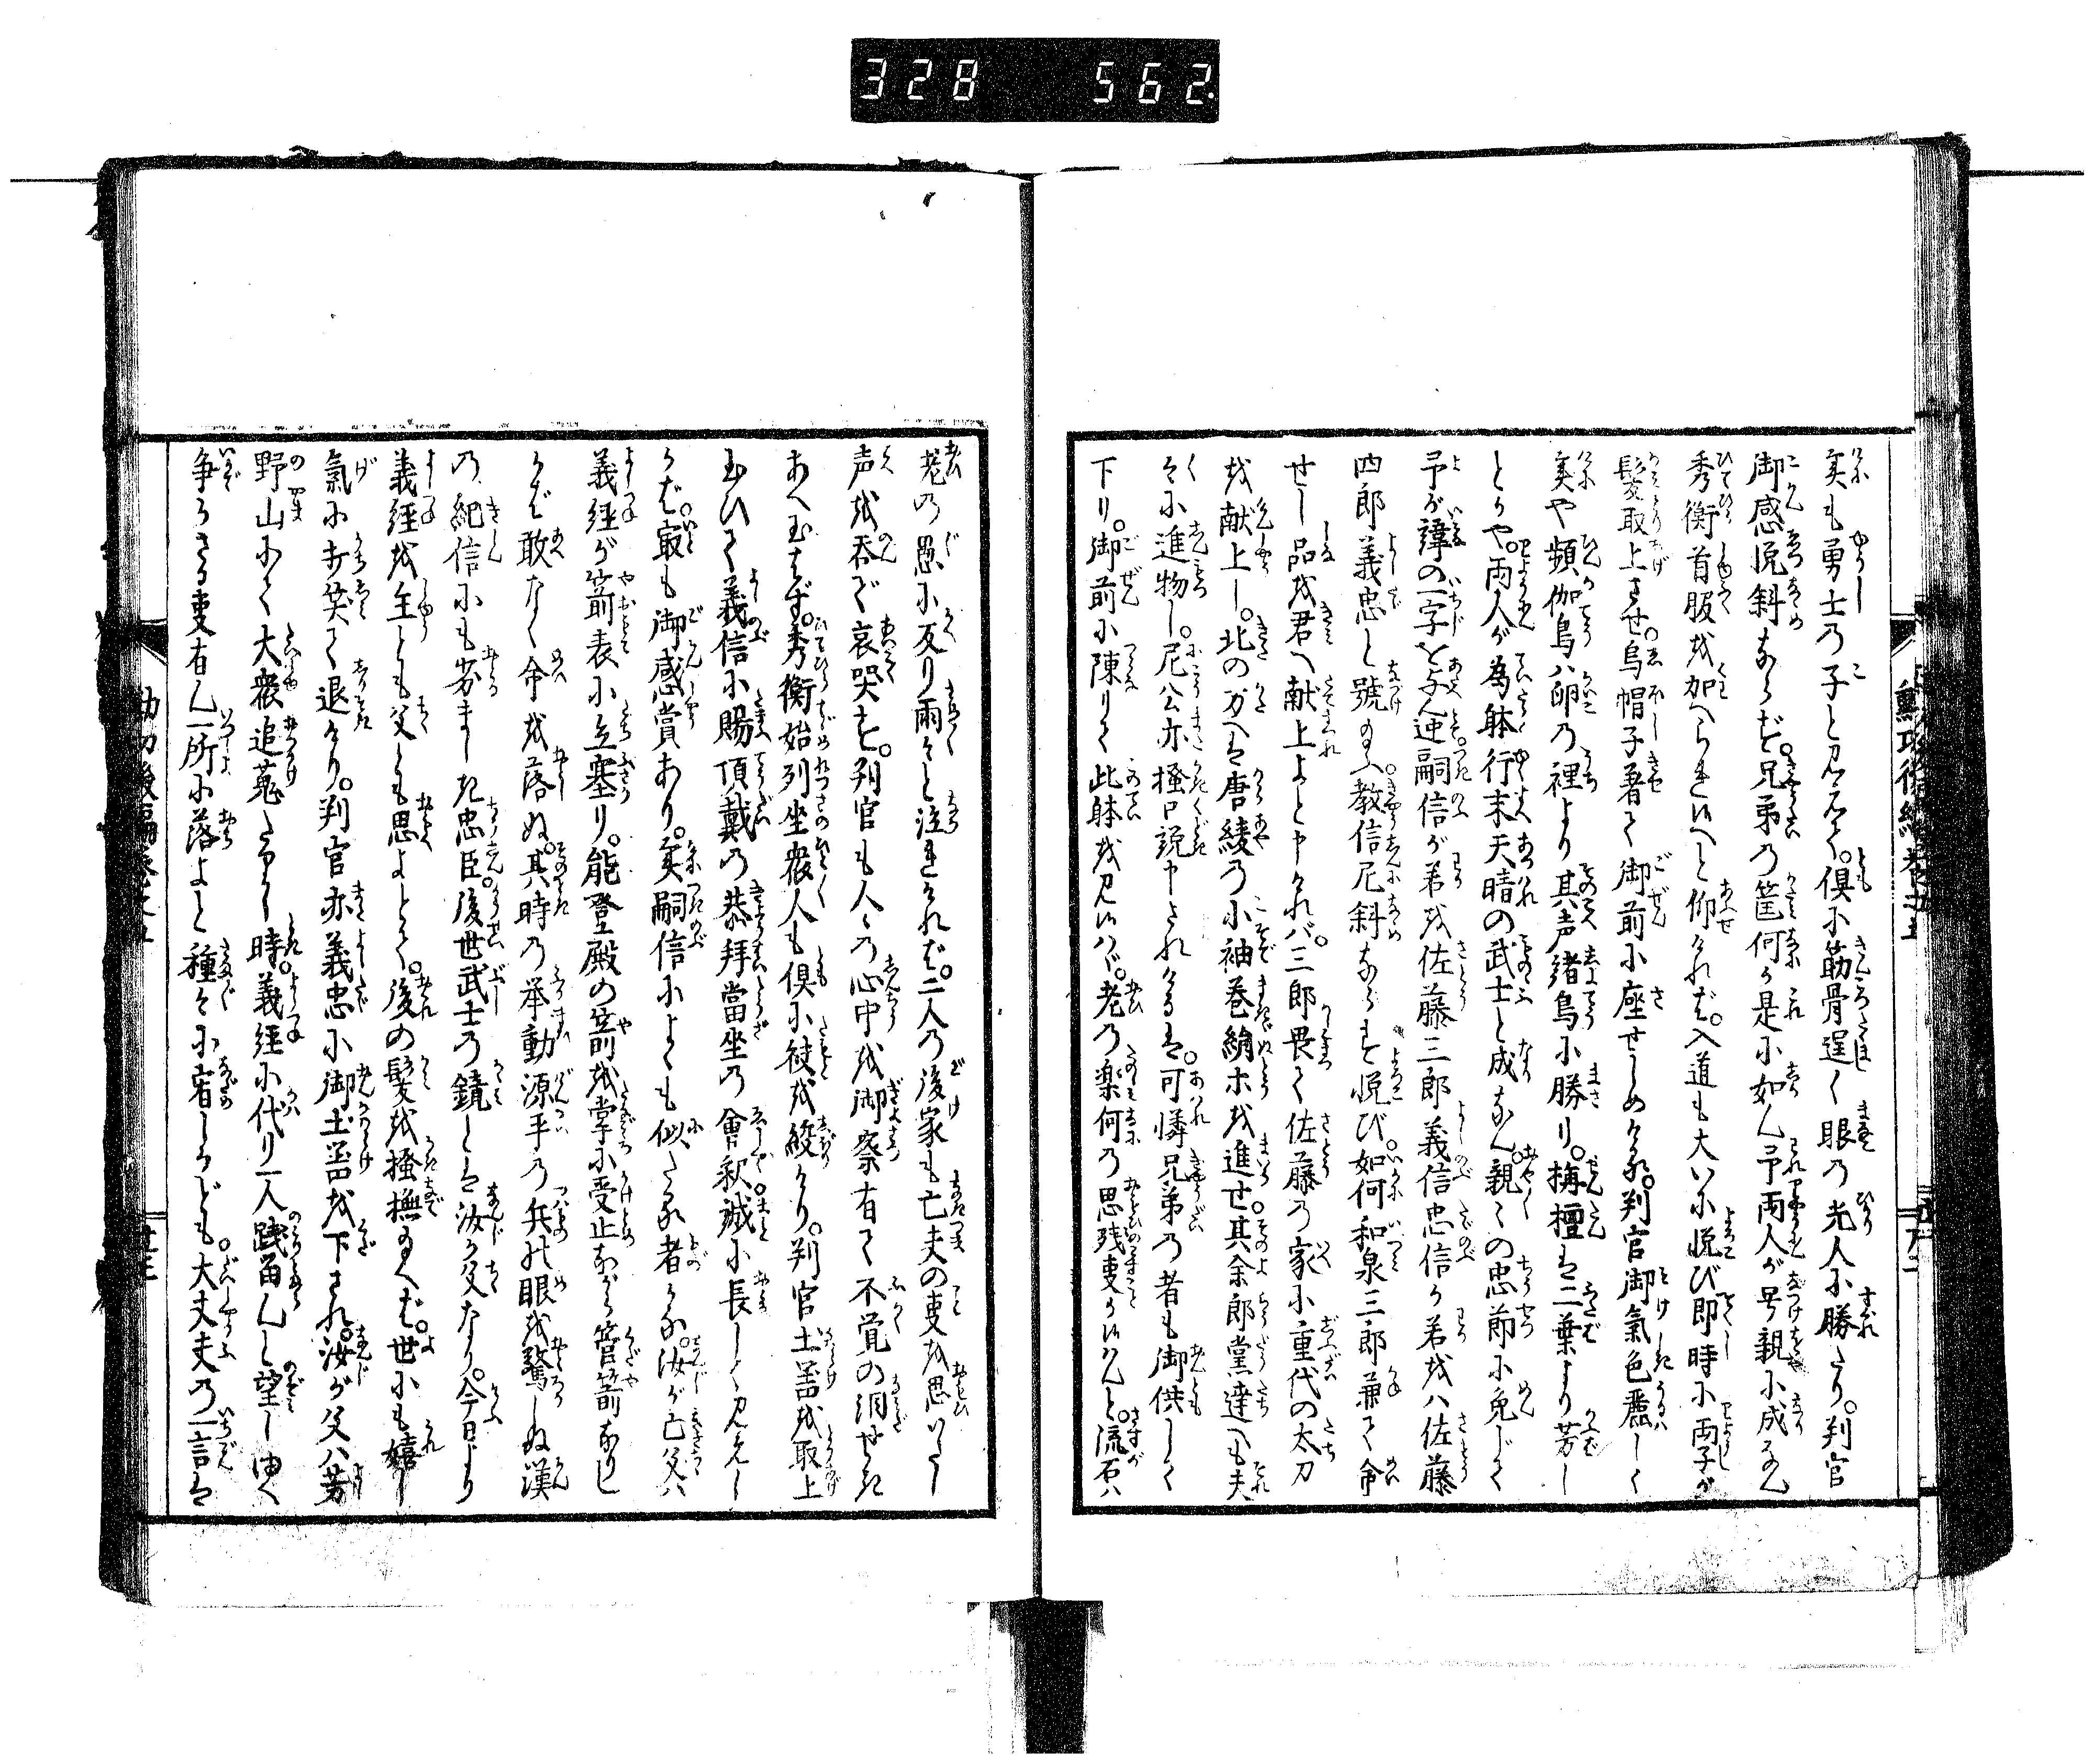 328 562
実も勇士の子と見えて。倶に筋骨逞く眼の光人に勝たり。判官
御感悦斜ならず。兄弟の筐何か是に如ん予両人が号親に成なん
秀衡首服を加へらまいへと仰ければ。入道も大いに悦び即時に両子が
髪取上させ。烏帽子着て御前に座せしめける。判官御気色麗しく
実や頻伽鳥ハ卵の裡より其声緒鳥に勝り。栴檀は二葉より芳し
とかや。両人が為躰行末天晴の武士と成なん。親〻の忠節に免じて
予が諱の一字を与ん迚。嗣信が若を佐藤三郎義信忠信が若をハ佐藤
四郎義忠と号のふ。教信尼斜ならず悦び。如何和泉三郎兼て命
せし品を君へ献上よと申ければ。三郎畏て佐藤の家に重代の太刀
を献上し。北の方へは唐綾の小袖巻絹等を進せ。其余郎党達へも夫
〻に進物し。尼公亦掻口説申されけるは。可憐兄弟の者も御供して
下り。御前に陳りて此躰を見いハゞ。老の楽何の思残事かいはんと。流石ハ
老の愚に反り雨〻と泣まければ。二人の後家も亡夫の事を思いたし
声を呑で哀哭す。判官も人〻の心中を御察有て不覚の涙せき
あへ玉はず。秀衡始列坐衆人も倶に袂を絞けり。判官土器を取上
玉ひて義信に賜頂戴の恭拝當坐の會釈誠に長しく見えし
かば。最も御感賞あり。実嗣信によくも似たる者かな。汝が亡父ハ
義経が箭表に立塞り。能登殿の箭を掌に受止ながら菅箭なりし
かば敢なく命を落ぬ。其時の挙動源平の兵の眼を驚しぬ漢
の紀信にも劣まし忠臣。後世武士の鏡とは汝が父なり。今日より
義経を主とも父とも思よとて。後の髪を掻撫のへば。世にも嬉し
氣に打笑て退けり。判官亦義忠に御土器を下され。汝が父ハ芳
野山にて大衆追蒐たりし時。義経に代り一人残留んと望し由へ
争かさる事有ん一所に落よと種〻に宥しかども。大丈夫の一言は